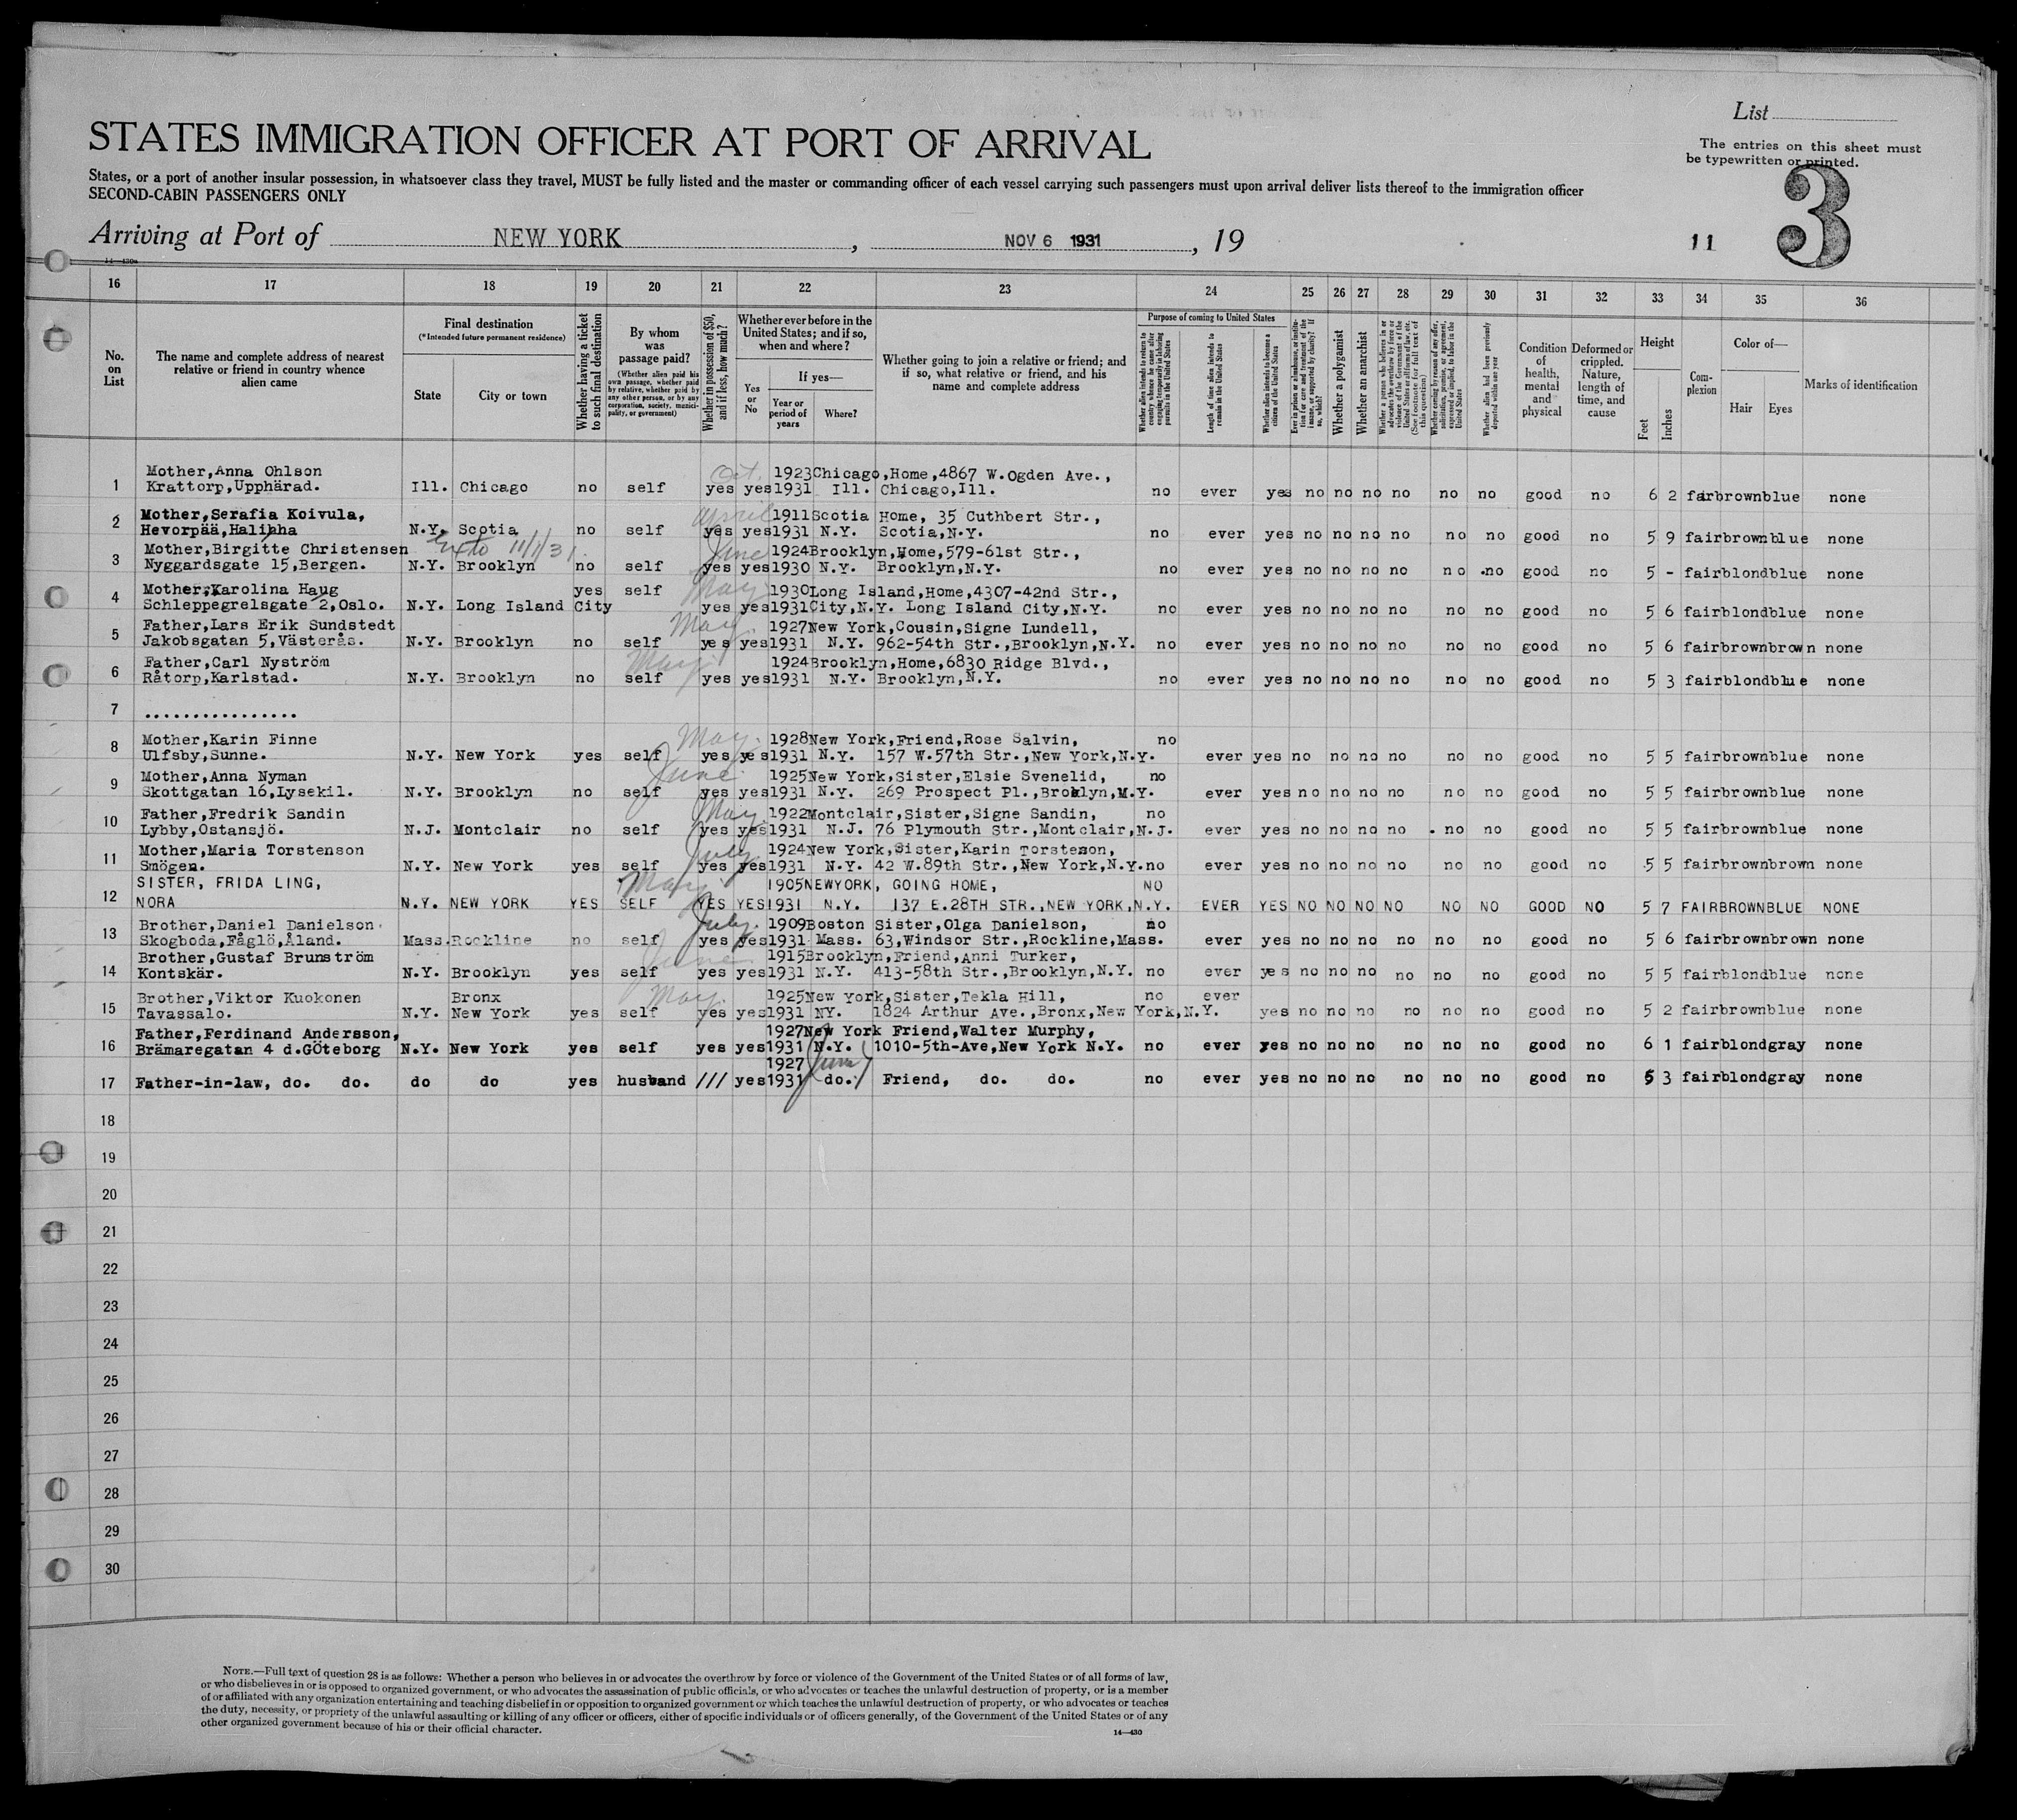 List
STATES IMMIGRATION OFFICER AT PORT OF ARRIVAL
The entries on this sheet must
be typewritten or printed.
States, or a port of another insular possession, in whatsoever class they travel, MUST be fully listed and the master or commanding officer of each vessel carrying such passengers must upon arrival deliver lists thereof to the immigration officer
SECOND-CABIN PASSENGERS ONLY
3
Arriving at Port of NEW YORK, NOV 6 1931, 19
11
14-430a
16 17 18 19 20 21 22 23 24 25 26 27 28 29 30 31 32 33 34 35 36
No. on List
The name and complete address of nearest relative or friend in country whence alien came
Final destination
(*Intended future permanent residence)
State
City or town
Whether having a ticket to such final destination
By whom was passage paid?
(Whether alien paid his own passage, whether paid by relative, whether paid by any other person, or by any corporation, society, municipality, or government)
Whether in possession of $50, and if less, how much?
Whether ever before in the United States; and if so, when and where?
Yes or No
If yes—
Year or period of years
Where?
Whether going to join a relative or friend; and if so, what relative or friend, and his name and complete address
Purpose of coming to United States
Whether alien intends to return to country whence he came after engaging temporarily in laboring pursuits in the United States
Length of time alien intends to remain in the United States
Whether alien intends to become a citizen of the United States
Ever in prison or almshouse, or institution for care and treatment of the insane, or supported by charity? If so, which?
Whether a polygamist
Whether an anarchist
Whether a person who believes in or advocates the overthrow by force or violence of the Government of the United States or all forms of law, etc. (See footnote for full text of this question)
Whether coming by reason of any offer, solicitation, promise, or agreement, expressed or implied, to labor in the United States
Whether alien had been previously deported within one year
Condition of health, mental and physical
Deformed or crippled. Nature, length of time, and cause
Height
Feet
Inches
Complexion
Color of—
Hair
Eyes
Marks of identification
Mother,Anna Ohlson Oct. 1923 Chicago,Home,4867 W.Ogden Ave.,
1 Krattorp,Upphärad. Ill. Chicago no self yes yes 1931 Ill. Chicago,Ill. no ever yes no no no no no no good no 6 2 fair brown blue none
Mother,Serafia Koivula, April 1911 Scotia Home, 35 Cuthbert Str.,
2 Hevorpää,Halihha N.Y. Scotia no self yes yes 1931 N.Y. Scotia,N.Y. no ever yes no no no no no no good no 5 9 fair brown blue none
Mother,Birgitte Christensen 11/1/31. June 1924 Brooklyn,Home,579-61st Str.,
3 Nyggardsgate 15,Bergen. N.Y. Brooklyn no self yes yes 1930 N.Y. Brooklyn,N.Y. no ever yes no no no no no no good no 5 - fair blond blue none
Mother,Karolina Haug yes self May 1930 Long Island,Home,4307-42nd Str.,
4 Schleppegrelsgate 2,Oslo. N.Y. Long Island City yes yes 1931 City,N.Y. Long Island City,N.Y. no ever yes no no no no no no good no 5 6 fair blond blue none
Father,Lars Erik Sundstedt May 1927 New York,Cousin,Signe Lundell,
5 Jakobsgatan 5,Västerås. N.Y. Brooklyn no self yes yes 1931 N.Y. 962-54th Str.,Brooklyn,N.Y. no ever yes no no no no no no good no 5 6 fair brown brown none
Father,Carl Nyström May 1924 Brooklyn,Home,6830 Ridge Blvd.,
6 Råtorp,Karlstad. N.Y. Brooklyn no self yes yes 1931 N.Y. Brooklyn,N.Y. no ever yes no no no no no no good no 5 3 fair blond blue none
7 ................
Mother,Karin Finne May. 1928 New York,Friend,Rose Salvin, no
8 Ulfsby,Sunne. N.Y. New York yes self yes yes 1931 N.Y. 157 W.57th Str.,New York,N.Y. ever yes no no no no no no good no 5 5 fair brown blue none
Mother,Anna Nyman June. 1925 New York,Sister,Elsie Svenelid, no
9 Skottgatan 16,Lysekil. N.Y. Brooklyn no self yes yes 1931 N.Y. 269 Prospect Pl.,Brooklyn,N.Y. ever yes no no no no no no good no 5 5 fair brown blue none
Father,Fredrik Sandin May. 1922 Montclair,Sister,Signe Sandin, no
10 Lybby,Ostansjö. N.J. Montclair no self yes yes 1931 N.J. 76 Plymouth Str.,Montclair,N.J. ever yes no no no no no no good no 5 5 fair brown blue none
Mother,Maria Torstenson July 1924 New York,Sister,Karin Torstenson,
11 Smögen. N.Y. New York yes self yes yes 1931 N.Y. 42 W.89th Str.,New York,N.Y. no ever yes no no no no no no good no 5 5 fair brown brown none
SISTER, FRIDA LING, May 1905 NEWYORK, GOING HOME, NO
12 NORA N.Y. NEW YORK YES SELF YES YES 1931 N.Y. 137 E.28TH STR.,NEW YORK,N.Y. EVER YES NO NO NO NO NO NO GOOD NO 5 7 FAIR BROWN BLUE NONE
Brother,Daniel Danielson. July. 1909 Boston Sister,Olga Danielson, no
13 Skogboda,Fåglö,Åland. Mass. Rockline no self yes yes 1931 Mass. 63,Windsor Str.,Rockline,Mass. ever yes no no no no no no good no 5 6 fair brown brown none
Brother,Gustaf Brunström June 1915 Brooklyn,Friend,Anni Turker,
14 Kontskär. N.Y. Brooklyn yes self yes yes 1931 N.Y. 413-58th Str.,Brooklyn,N.Y. no ever yes no no no no no no good no 5 5 fair blond blue none
Brother,Viktor Kuokonen Bronx May. 1925 New York,Sister,Tekla Hill, no ever
15 Tavassalo. N.Y. New York yes self yes yes 1931 NY. 1824 Arthur Ave.,Bronx,New York,N.Y. yes no no no no no no good no 5 2 fair brown blue none
Father,Ferdinand Andersson, 1927 New York Friend,Walter Murphy,
16 Brämaregatan 4 d.GÖteborg N.Y. New York yes self yes yes 1931 N.Y. 1010-5th-Ave,New York N.Y. no ever yes no no no no no no good no 6 1 fair blond gray none
1927 June
17 Father-in-law, do. do. do do yes husband /// yes 1931 do. Friend, do. do. no ever yes no no no no no no good no 5 3 fair blond gray none
18
19
20
21
22
23
24
25
26
27
28
29
30
NOTE.—Full text of question 28 is as follows: Whether a person who believes in or advocates the overthrow by force or violence of the Government of the United States or of all forms of law,
or who disbelieves in or is opposed to organized government, or who advocates the assassination of public officials, or who advocates or teaches the unlawful destruction of property, or is a member
of or affiliated with any organization entertaining and teaching disbelief in or opposition to organized government or which teaches the unlawful destruction of property, or who advocates or teaches
the duty, necessity, or propriety of the unlawful assaulting or killing of any officer or officers, either of specific individuals or of officers generally, of the Government of the United States or of any
other organized government because of his or their official character.
14-430